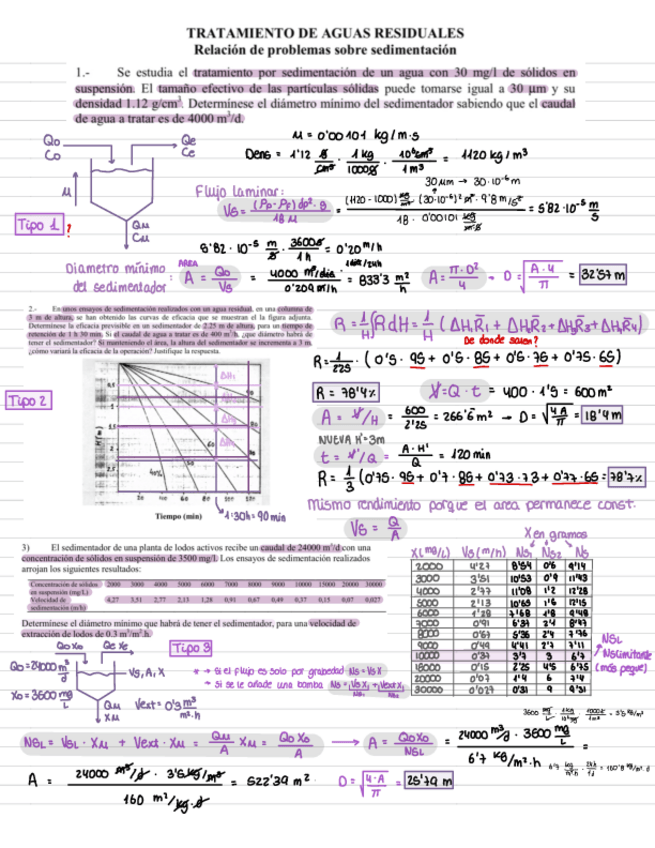 TRATAMIENTO DE AGUAS RESIDUALES
Relación de problemas sobre sedimentación
1.- Se estudia el tratamiento por sedimentación de un agua con 30 mg/l de sólidos en
suspensión. El tamaño efectivo de las partículas sólidas puede tomarse igual a 30 μm y su
densidad 1.12 g/cm³. Determínese el diámetro mínimo del sedimentador sabiendo que el caudal
de agua a tratar es de 4000 m³/d.
μ = 0'00101 kg/m·s
Qo Co
Qe Ce
Dens = 1'12 g/cm³ · 1 kg/1000g · 10⁶cm³/1 m³ = 1120 kg/m³
30 μm → 30·10⁻⁶ m
Flujo laminar:
Vs = (Pp-Pf) dp²·g / 18 μ = (1120-1000) kg/m³ (30·10⁻⁶)² m² · 9'8 m/s² / 18 · 0'00101 kg/m·s = 5'82·10⁻⁵ m/s
Tipo 1 ?
Qu Cu
5'82·10⁻⁵ m/s · 3600s/1h = 0'20 m/h
Diametro mínimo del sedimentador: AREA A = Qo/Vs = 4000 m³/día · 1día/24h / 0'20 m/h = 833'3 m²/h
A = π·D²/4 → D = √A·4/π = 32'57 m
2.- En unos ensayos de sedimentación realizados con un agua residual, en una columna de
3 m de altura, se han obtenido las curvas de eficacia que se muestran en el figura adjunta.
Determínese la eficacia previsible en un sedimentador de 2.25 m de altura, para un tiempo de
retención de 1 h 30 min. Si el caudal de agua a tratar es de 400 m³/h, ¿que diámetro habrá de
tener el sedimentador? Si manteniendo el área, la altura del sedimentador se incrementa a 3 m,
¿cómo variará la eficacia de la operación? Justifique la respuesta.
R = 1/H ∫R dH = 1/H (ΔH₁R̄₁ + ΔH₂R̄₂ + ΔH₃R̄₃ + ΔH₄R̄₄)
De donde salen?
R = 1/2'25 · (0'5·95 + 0'5·85 + 0'5·75 + 0'75·65)
Tipo 2
R = 78'4%
V = Q·t = 400·1'5 = 600 m³
A = V/H = 600/2'25 = 266'6 m² → D = √4A/π = 18'4 m
NUEVA H'=3m
t = V'/Q = A·H'/Q = 120 min
R = 1/3 (0'75·95 + 0'7·86 + 0'73·73 + 0'77·65 = 78'7%
Tiempo (min)
1:30h = 90 min
Mismo rendimiento porque el area permanece const.
Vs = Q/A
3) El sedimentador de una planta de lodos activos recibe un caudal de 24000 m³/d con una
concentración de sólidos en suspensión de 3500 mg/l. Los ensayos de sedimentación realizados
arrojan los siguientes resultados:
Concentración de sólidos en suspensión (mg/L) 2000 3000 4000 5000 6000 7000 8000 9000 10000 15000 20000 30000
Velocidad de sedimentación (m/h) 4,27 3,51 2,77 2,13 1,28 0,91 0,67 0,49 0,37 0,15 0,07 0,027
Determínese el diámetro mínimo que habrá de tener el sedimentador, para una velocidad de
extracción de lodos de 0.3 m³/m².h.
X en gramos
X (mg/L) Vs (m/h) Ns₁ Ns₂ Ns
2000 4'27 8'54 0'6 9'14
3000 3'51 10'53 0'9 11'43
4000 2'77 11'08 1'2 12'28
5000 2'13 10'65 1'5 12'15
6000 1'28 7'68 1'8 9'48
7000 0'91 6'37 2'1 8'47
8000 0'67 5'36 2'4 7'76
9000 0'49 4'41 2'7 7'11
10000 0'37 3'7 3 6'7
15000 0'15 2'25 4'5 6'75
20000 0'07 1'4 6 7'4
30000 0'027 0'81 9 9'81
NSL
NSLimitante
(más peque)
Tipo 3
Qo Xo
Qe Xe
Qo = 24000 m³/d
Vs, A, X
Xo = 3500 mg/L
Qu Xu
Vext = 0'3 m³/m²·h
* → Si el flujo es solo por gravedad Ns = Vs X
→ Si se le añade una bomba Ns = Vs X + Vext X
NSL = VSL·Xu + Vext·Xu = Qu/A Xu = QoXo/A → A = QoXo/NSL = 24000 m³/d · 3500 mg/L / 6'7 kg/m²·h =
A = 24000 m³/d · 3'5 kg/m³ / 160 m²/kg·d = 522'39 m²
D = √4·A/π = 25'79 m